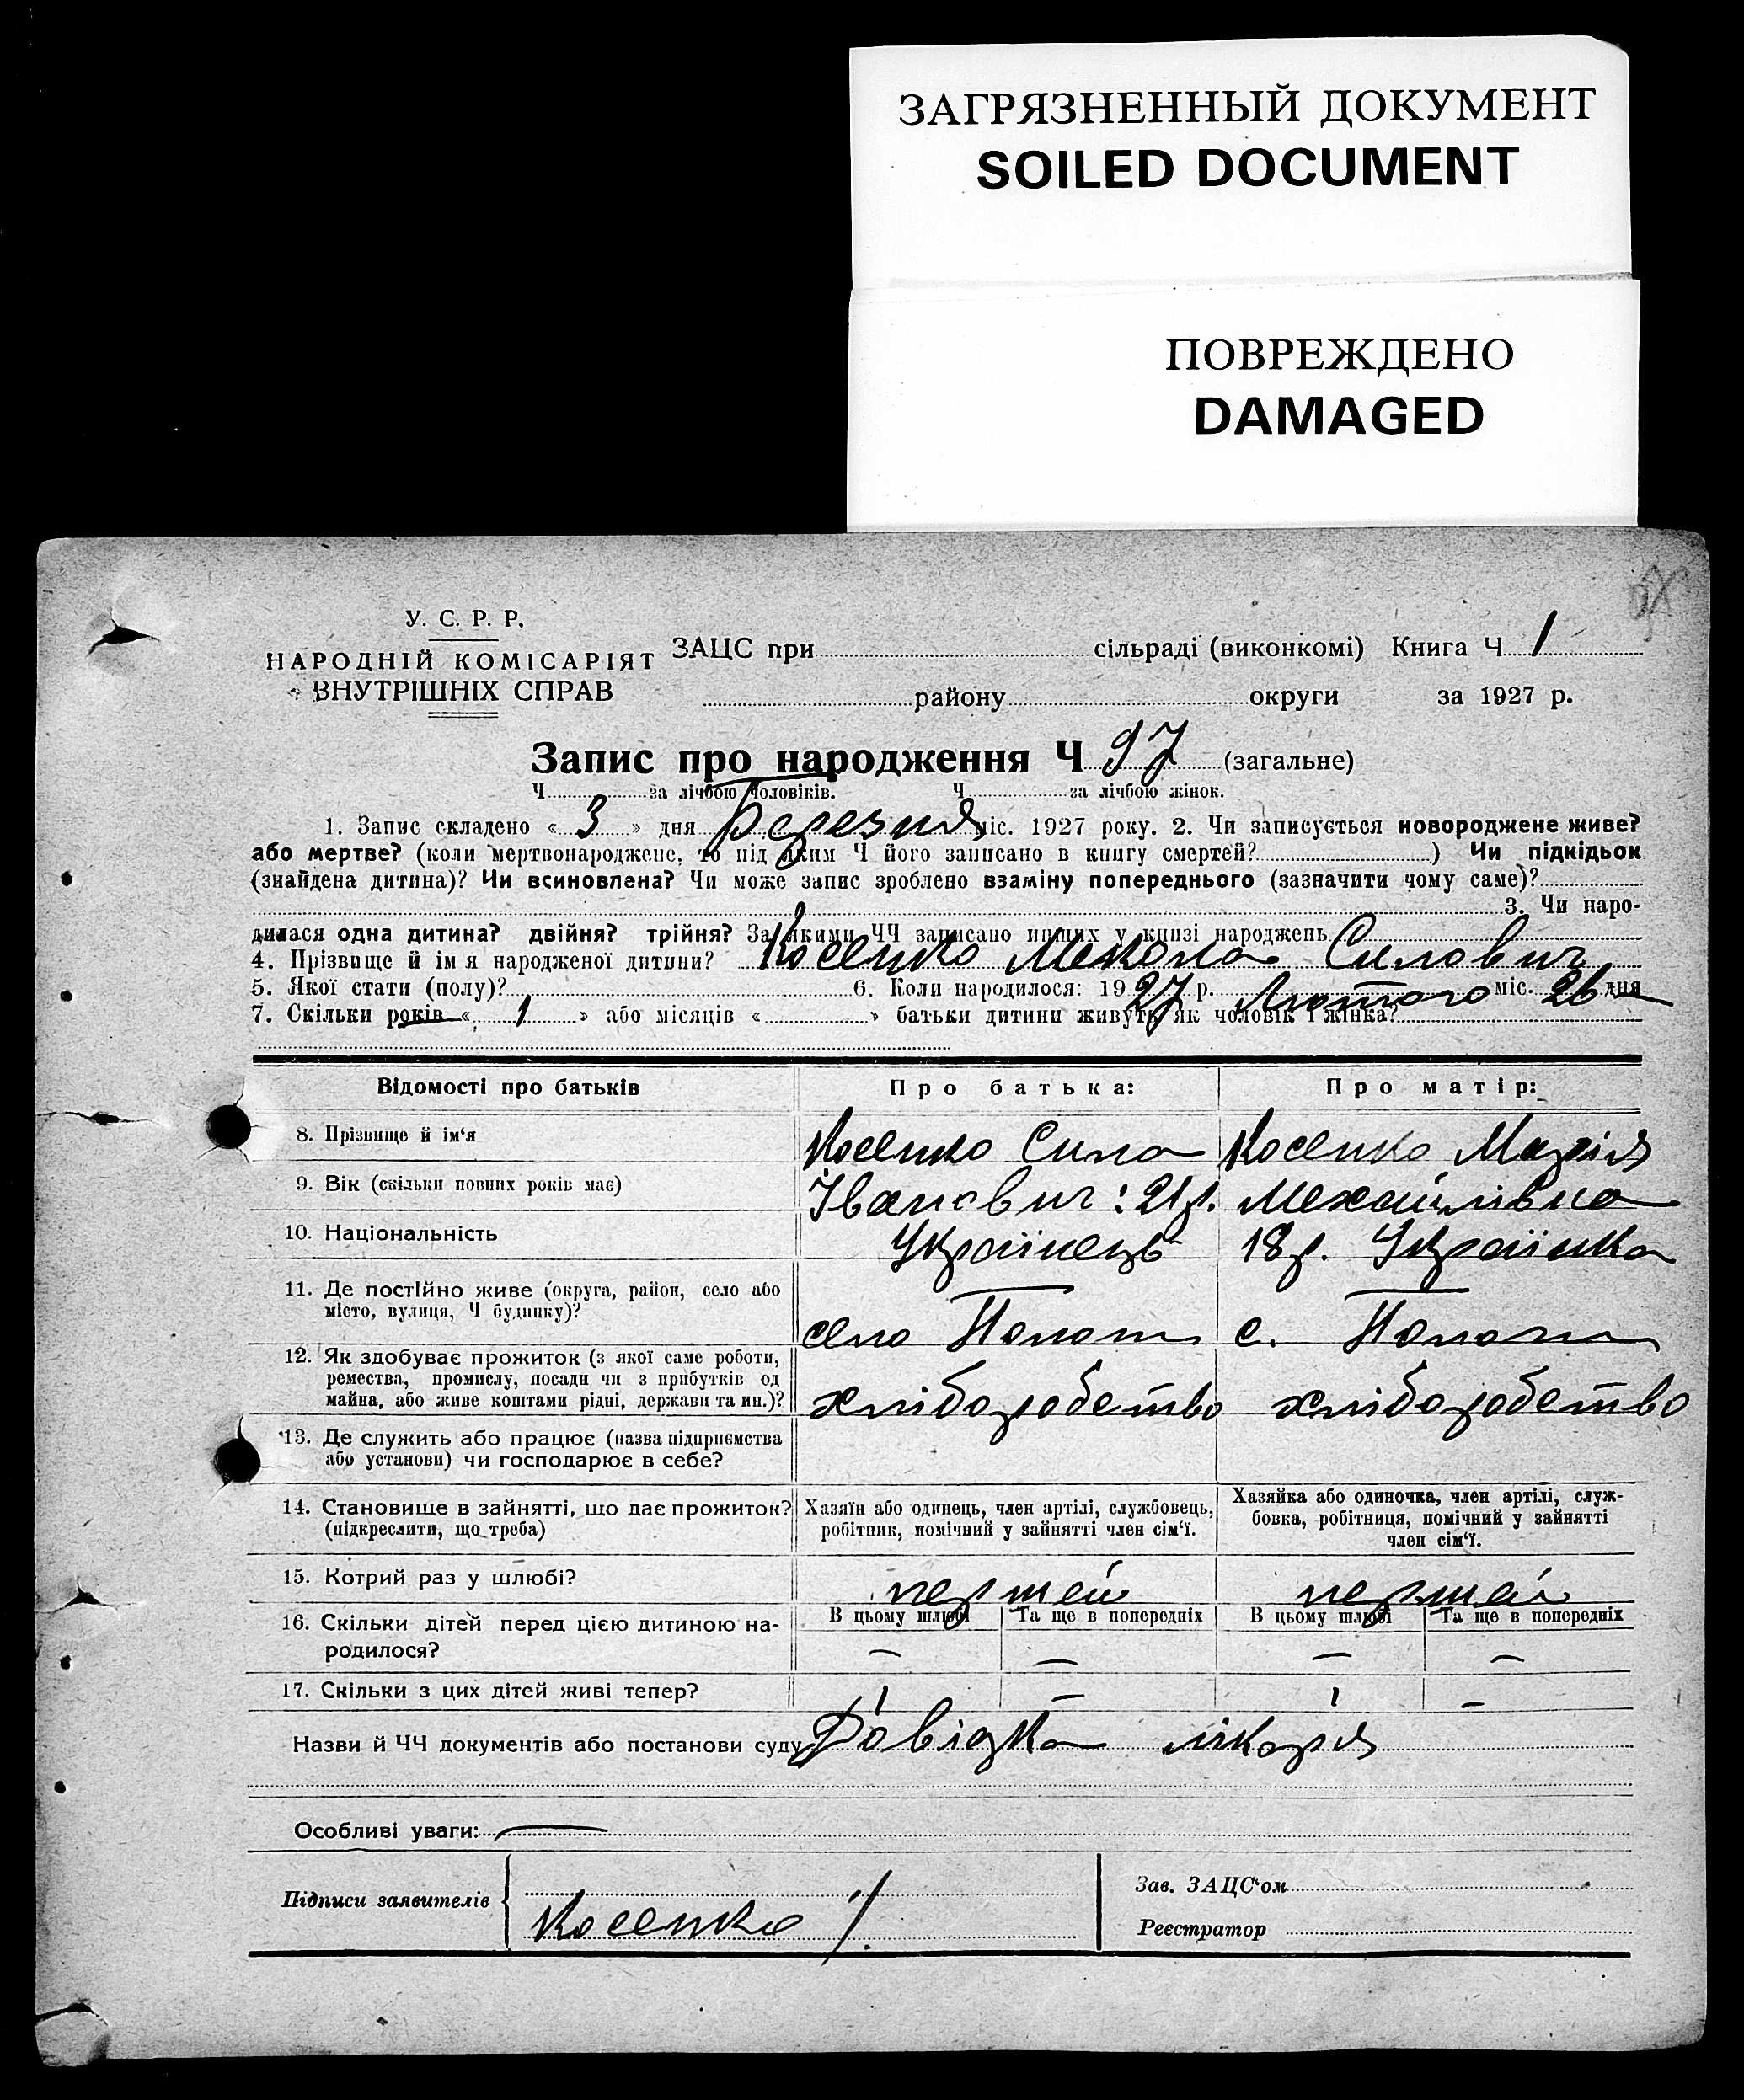 ЗАГРЯЗНЕННЫЙ ДОКУМЕНТ
SOILED DOCUMENT
ПОВРЕЖДЕНО
DAMAGED
У. С. Р. Р.
НАРОДНІЙ КОМІСАРІЯТ
ВНУТРІШНІХ СПРАВ
ЗАЦС при сільраді (виконкомі) Книга Ч 1
району округи за 1927 р.
Запис про народження Ч 97 (загальне)
Ч за лічбою чоловіків. Ч за лічбою жінок.
1. Запис складено « 3 » дня Березня міс. 1927 року. 2. Чи записується новороджене живе?
або мертве? (коли мертвонароджене, то під яким Ч його записано в книгу смертей? ) Чи підкідьок
(знайдена дитина)? Чи всиновлена? Чи може запис зроблено взаміну попереднього (зазначити чому саме)?
3. Чи наро-
дилася одна дитина? двійня? трійня? За якими ЧЧ записано инших у книзі народжень
4. Прізвище й ім я народженої дитини? Косенко Мекола Силович
5. Якої стати (полу)? 6. Коли народилося: 1927 р. Лютого міс. 26 дня
7. Скільки років « 1 » або місяців « » батьки дитини живуть як чоловік і жінка?
Відомості про батьків Про батька: Про матір:
8. Прізвище й ім'я Косенко Сила Косенко Марія
9. Вік (скільки повних років має) Іванович: 21р. Мехайлівна
10. Національність Українець 18р. Українка
11. Де постійно живе (округа, район, село або
місто, вулиця, Ч будинку)?
село с.
12. Як здобуває прожиток (з якої саме роботи,
ремества, промислу, посади чи з прибутків од
майна, або живе коштами рідні, держави та ин.)?
хліборобство хліборобство
13. Де служить або працює (назва підприємства
або установи) чи господарює в себе?
14. Становище в зайнятті, що дає прожиток?
(підкреслити, що треба)
Хазяїн або одинець, член артілі, службовець,
робітник, помічний у зайнятті член сім'ї.
Хазяйка або одиночка, член артілі, служ-
бовка, робітниця, помічний у зайнятті
член сім'ї.
15. Котрий раз у шлюбі? першей першей
16. Скільки дітей перед цією дитиною на-
родилося?
В цьому шлюбі Та ще в попередніх В цьому шлюбі Та ще в попередніх
— — — —
17. Скільки з цих дітей живі тепер? 1 — 1 —
Назви й ЧЧ документів або постанови суду Довідка лікаря
Особливі уваги: —
Підписи заявителів Косенко
Зав. ЗАЦС'ом
Реєстратор